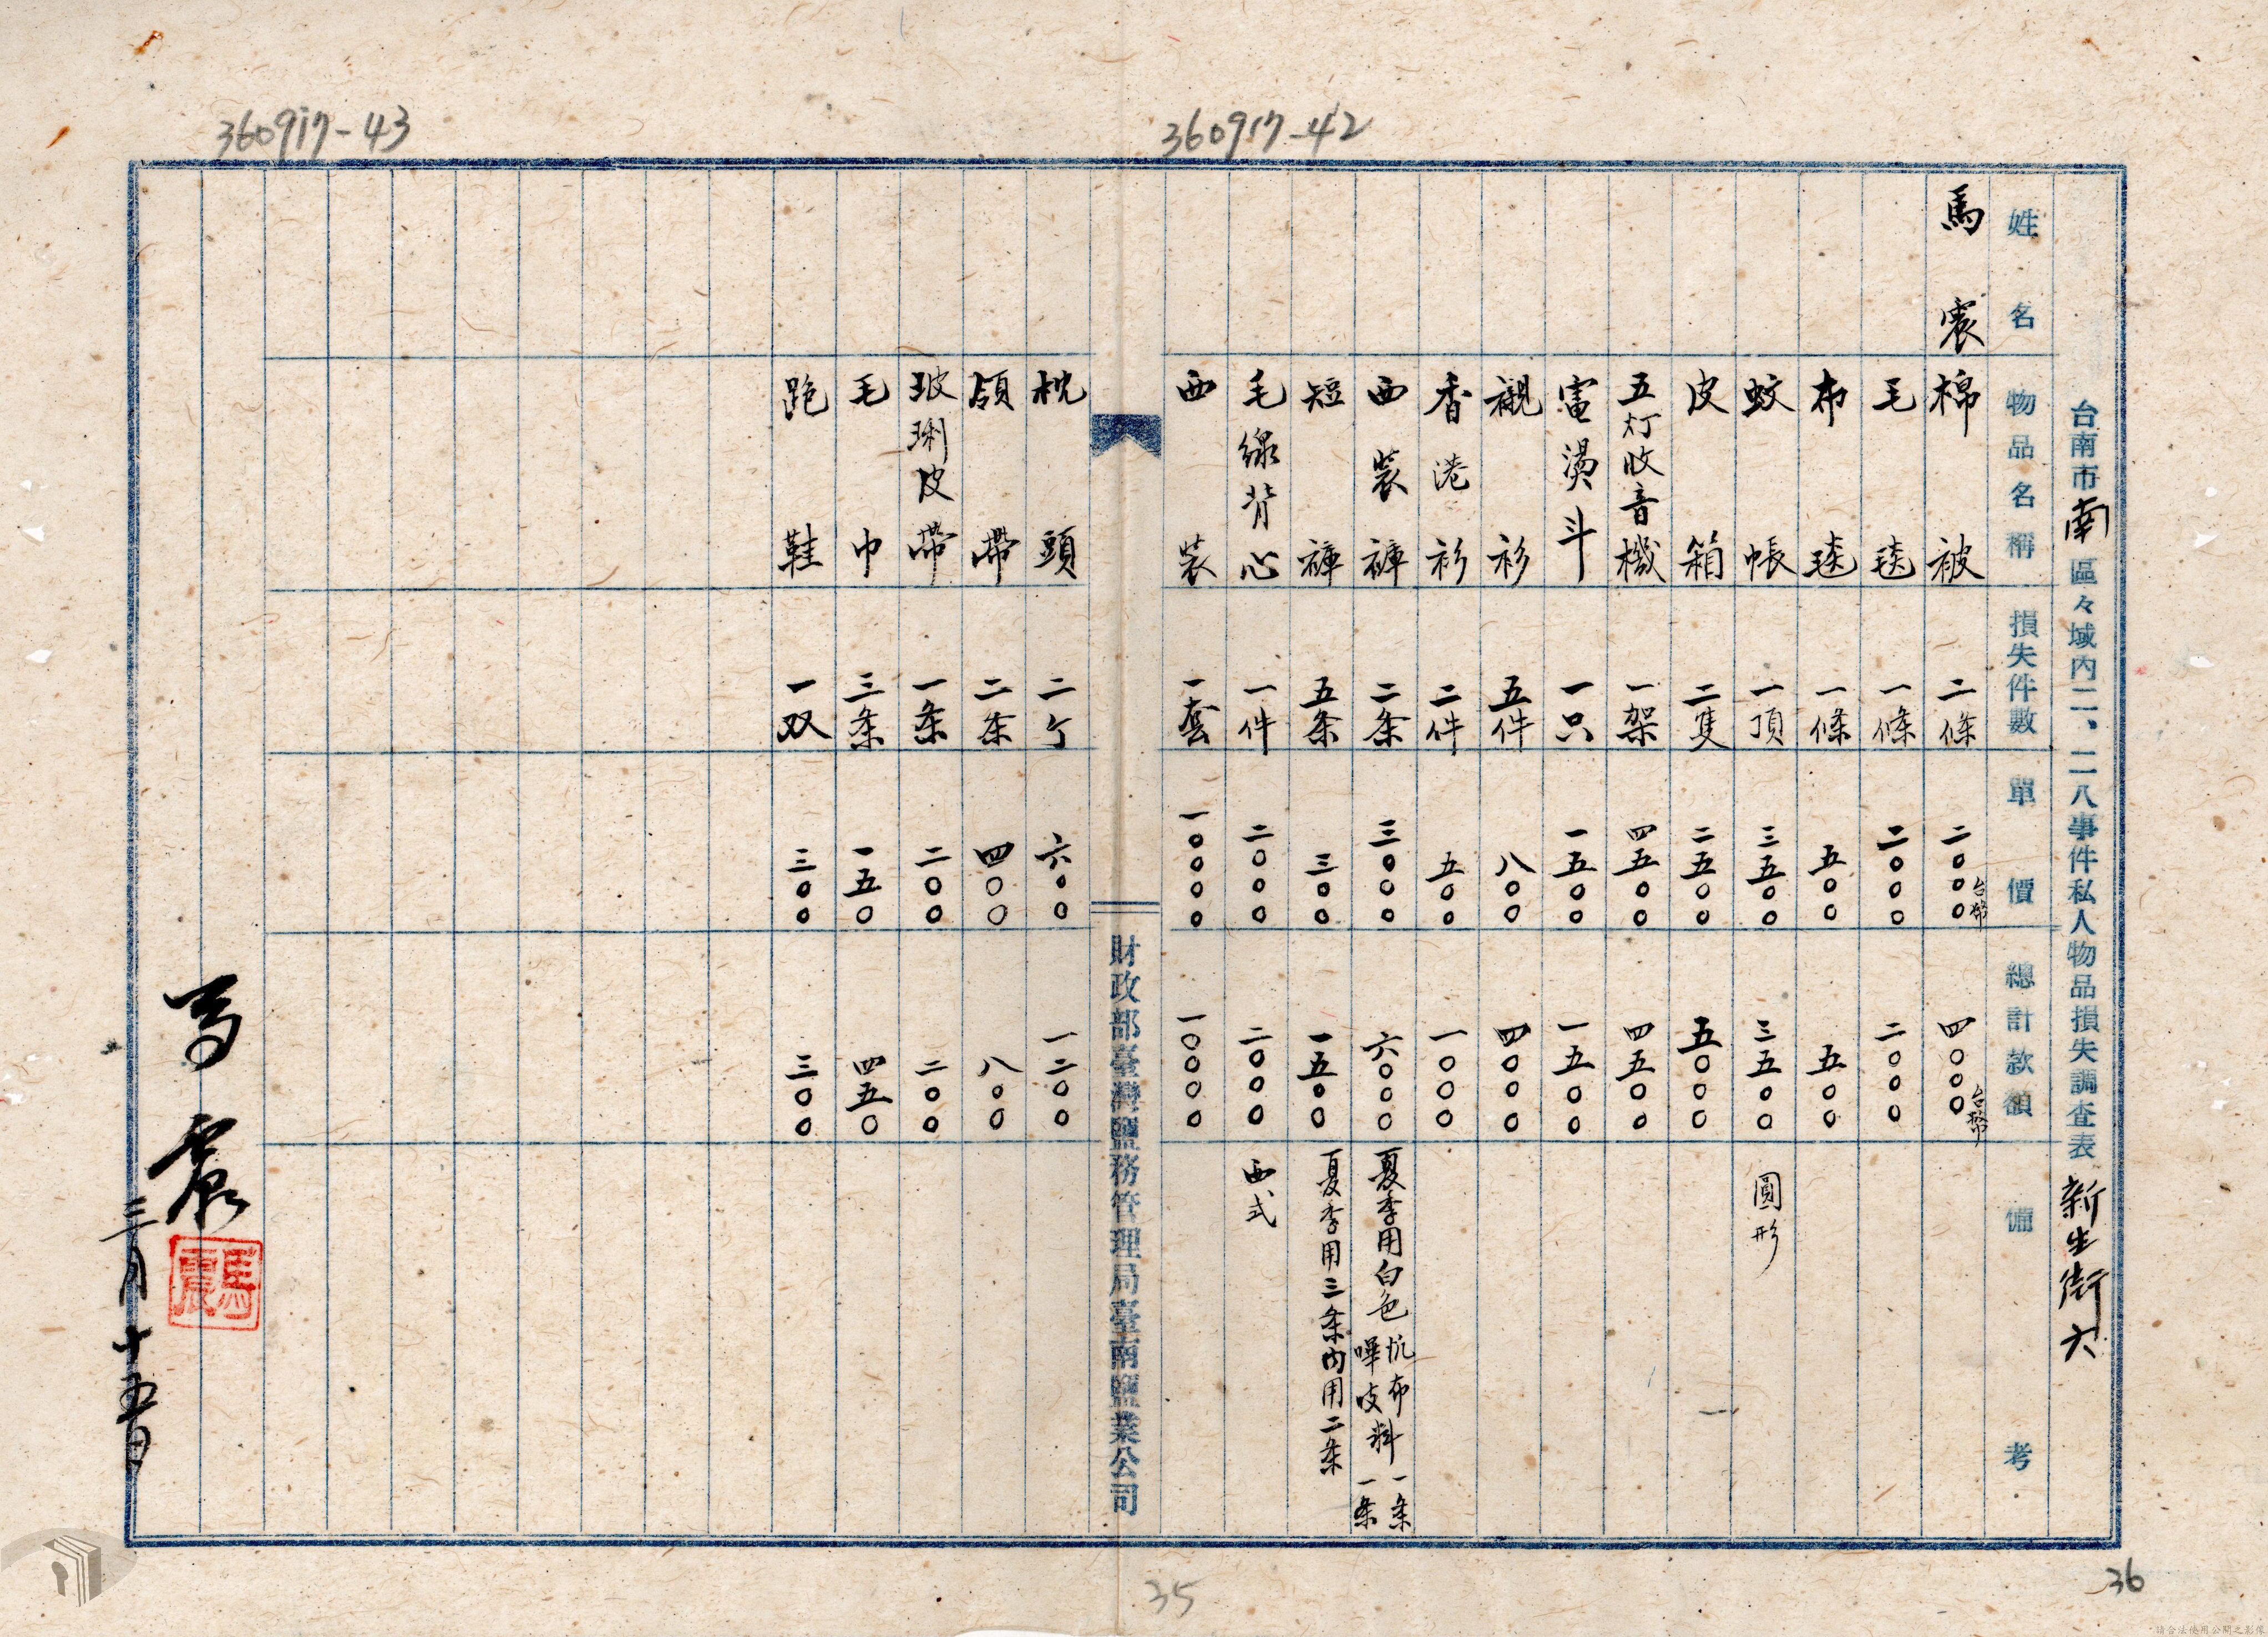 360917-42
360917-43
台南市南區々域內二、二八事件私人物品損失調查表 新生街六
姓名 物品名稱 損失件數 單價 總計款額 備考
馬震 棉被 二條 二〇〇〇台幣 四〇〇〇台幣
毛毯 一條 二〇〇〇 二〇〇〇
布毯 一條 五〇〇 五〇〇
蚊帳 一頂 三五〇〇 三五〇〇 圓形
皮箱 二隻 二五〇〇 五〇〇〇
五灯收音機 一架 四五〇〇 四五〇〇
電燙斗 一只 一五〇〇 一五〇〇
襯衫 五件 八〇〇 四〇〇〇
香港衫 二件 五〇〇 一〇〇〇
西裝褲 二条 三〇〇〇 六〇〇〇 夏季用白色 杭布料一条 嗶吱一条
短褲 五条 三〇〇 一五〇〇 夏季用三条內用二条
毛線背心 一件 二〇〇〇 二〇〇〇 西式
西裝 一套 一〇〇〇〇 一〇〇〇〇
財政部臺灣鹽務管理局臺南鹽業公司
枕頭 二个 六〇〇 一二〇〇
領帶 二条 四〇〇 八〇〇
玻琍皮帶 一条 二〇〇 二〇〇
毛巾 三条 一五〇 四五〇
跑鞋 一双 三〇〇 三〇〇
馬震
馬震
三月十五日
35
36
請合法使用公開之影像